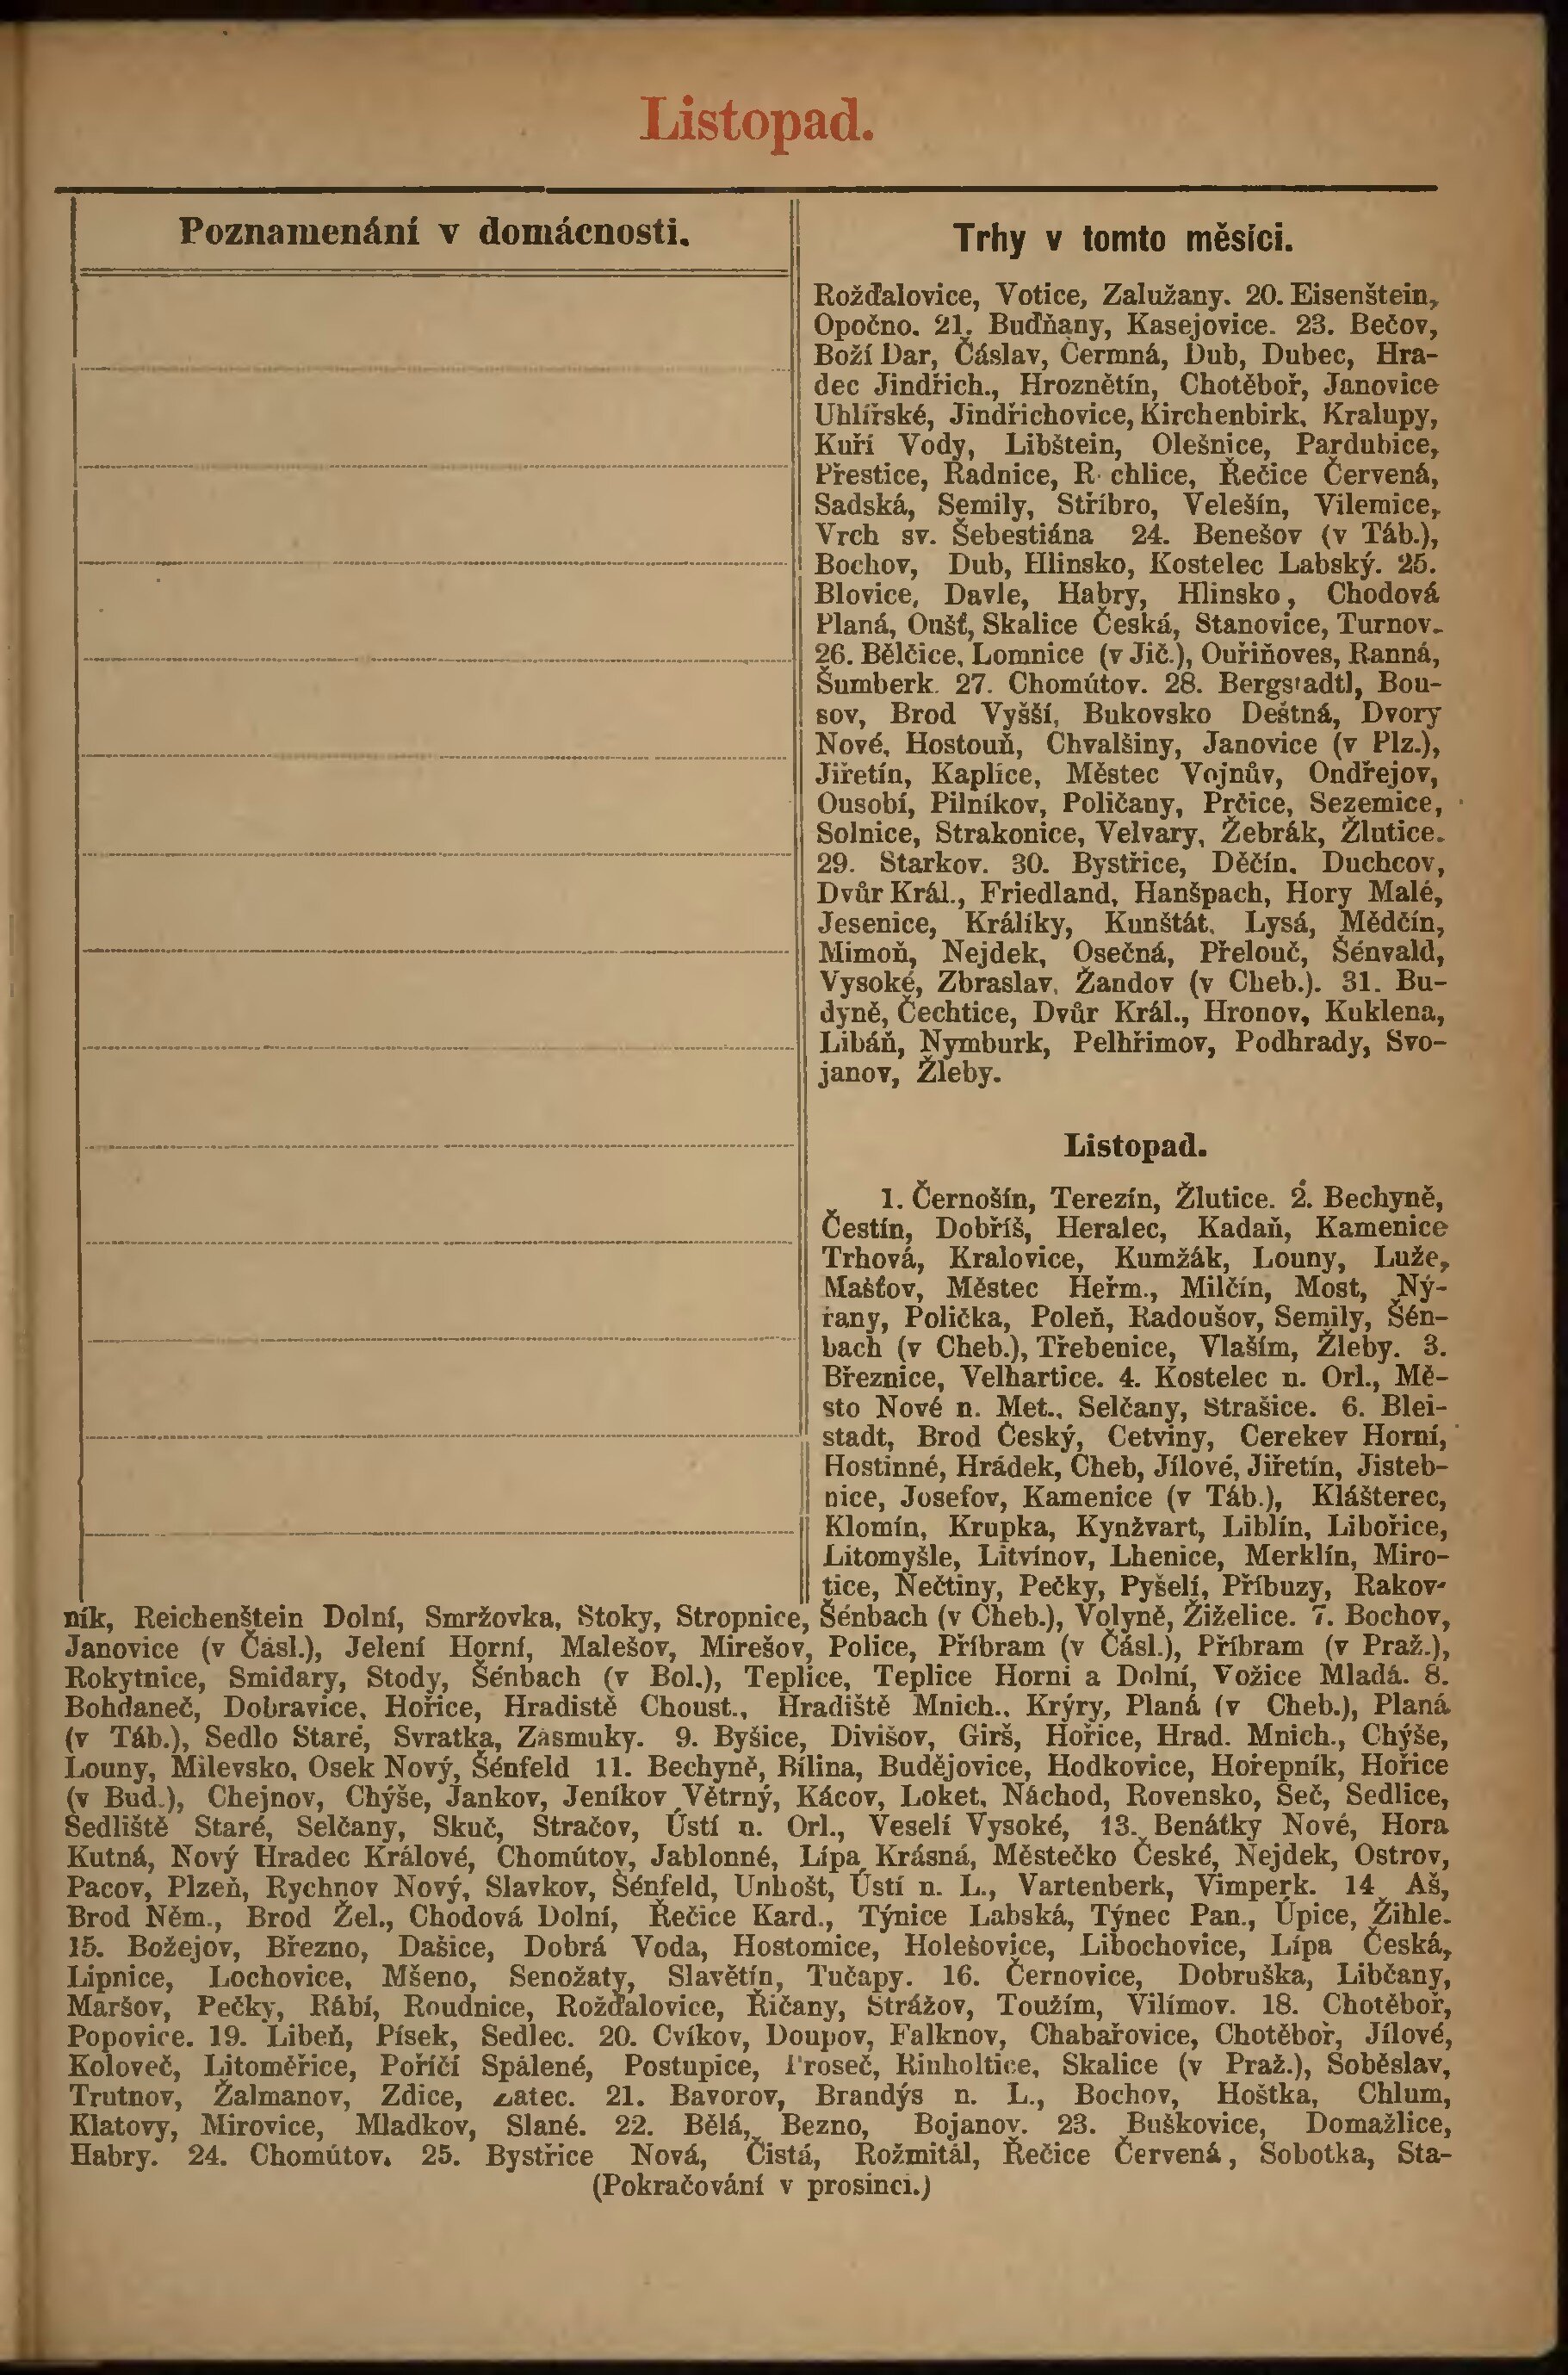 Listopad.
Poznamenání v domácnosti.
Trhy v tomto měsíci.
Rožďalovice, Votice, Zalužany. 20. Eisenštein,
Opočno. 21. Buďňany, Kasejovice. 23. Bečov,
Boží Dar, Čáslav, Čermná, Dub, Dubec, Hra-
dec Jindřich., Hroznětín, Chotěboř, Janovice
Uhlířské, Jindřichovice, Kirchenbirk, Kralupy,
Kuří Vody, Libštein, Olešnice, Pardubice,
Přestice, Radnice, R chlice, Řečice Červená,
Sadská, Semily, Stříbro, Velešín, Vilemice,
Vrch sv. Šebestiána 24. Benešov (v Táb.),
Bochov, Dub, Hlinsko, Kostelec Labský. 25.
Blovice, Davle, Habry, Hlinsko, Chodová
Planá, Oušť, Skalice Česká, Stanovice, Turnov.
26. Bělčice, Lomnice (v Jič.), Ouřiňoves, Ranná,
Šumberk. 27. Chomútov. 28. Bergstadtl, Bou-
sov, Brod Vyšší, Bukovsko Deštná, Dvory
Nové, Hostouň, Chvalšiny, Janovice (v Plz.),
Jiřetín, Kaplice, Městec Vojnův, Ondřejov,
Ousobí, Pilníkov, Poličany, Prčice, Sezemice,
Solnice, Strakonice, Velvary, Žebrák, Žlutice.
29. Starkov. 30. Bystřice, Děčín, Duchcov,
Dvůr Král., Friedland, Hanšpach, Hory Malé,
Jesenice, Králíky, Kunštát, Lysá, Mědčín,
Mimoň, Nejdek, Osečná, Přelouč, Šénvald,
Vysoké, Zbraslav, Žandov (v Cheb.). 31. Bu-
dyně, Čechtice, Dvůr Král., Hronov, Kuklena,
Libáň, Nymburk, Pelhřimov, Podhrady, Svo-
janov, Žleby.
Listopad.
1. Černošín, Terezín, Žlutice. 2. Bechyně,
Čestín, Dobříš, Heralec, Kadaň, Kamenice
Trhová, Kralovice, Kumžák, Louny, Luže,
Mašťov, Městec Heřm., Milčín, Most, Ný-
řany, Polička, Poleň, Radoušov, Semily, Šén-
bach (v Cheb.), Třebenice, Vlaším, Žleby. 3.
Březnice, Velhartice. 4. Kostelec n. Orl., Mě-
sto Nové n. Met., Selčany, Strašice. 6. Blei-
stadt, Brod Český, Cetviny, Cerekev Horní,
Hostinné, Hrádek, Cheb, Jílové, Jiřetín, Jisteb-
nice, Josefov, Kamenice (v Táb.), Klášterec,
Klomín, Krupka, Kynžvart, Liblín, Libořice,
Litomyšle, Litvínov, Lhenice, Merklín, Miro-
tice, Nečtiny, Pečky, Pyšelí, Příbuzy, Rakov-
ník, Reichenštein Dolní, Smržovka, Stoky, Stropnice, Šénbach (v Cheb.), Volyně, Žiželice. 7. Bochov,
Janovice (v Čásl.), Jelení Horní, Malešov, Mirešov, Police, Příbram (v Čásl.), Příbram (v Praž.),
Rokytnice, Smidary, Stody, Šénbach (v Bol.), Teplice, Teplice Horní a Dolní, Vožice Mladá. 8.
Bohdaneč, Dobravice, Hořice, Hradistě Choust., Hradiště Mnich., Krýry, Planá (v Cheb.), Planá
(v Táb.), Sedlo Staré, Svratka, Zásmuky. 9. Byšice, Divišov, Girš, Hořice, Hrad. Mnich., Chýše,
Louny, Milevsko, Osek Nový, Šénfeld 11. Bechyně, Bílina, Budějovice, Hodkovice, Hořepník, Hořice
(v Bud.), Chejnov, Chýše, Jankov, Jeníkov Větrný, Kácov, Loket, Náchod, Rovensko, Seč, Sedlice,
Sedliště Staré, Selčany, Skuč, Stračov, Ústí n. Orl., Veselí Vysoké, 13. Benátky Nové, Hora
Kutná, Nový Hradec Králové, Chomútov, Jablonné, Lípa Krásná, Městečko České, Nejdek, Ostrov,
Pacov, Plzeň, Rychnov Nový, Slavkov, Šénfeld, Unhošt, Ústí n. L., Vartenberk, Vimperk. 14 Aš,
Brod Něm., Brod Žel., Chodová Dolní, Řečice Kard., Týnice Labská, Týnec Pan., Úpice, Žihle.
15. Božejov, Březno, Dašice, Dobrá Voda, Hostomice, Holešovice, Libochovice, Lípa Česká,
Lipnice, Lochovice, Mšeno, Senožaty, Slavětín, Tučapy. 16. Černovice, Dobruška, Libčany,
Maršov, Pečky, Rábí, Roudnice, Rožďalovice, Řičany, Strážov, Toužím, Vilímov. 18. Chotěboř,
Popovice. 19. Libeň, Písek, Sedlec. 20. Cvíkov, Doupov, Falknov, Chabařovice, Chotěboř, Jílové,
Koloveč, Litoměřice, Poříčí Spálené, Postupice, Proseč, Rinholtice, Skalice (v Praž.), Soběslav,
Trutnov, Žalmanov, Zdice, Žatec. 21. Bavorov, Brandýs n. L., Bochov, Hoštka, Chlum,
Klatovy, Mirovice, Mladkov, Slané. 22. Bělá, Bezno, Bojanov. 23. Buškovice, Domažlice,
Habry. 24. Chomútov. 25. Bystřice Nová, Čistá, Rožmitál, Řečice Červená, Sobotka, Sta-
(Pokračování v prosinci.)